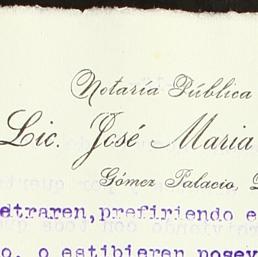 Notaría Pública
Lic. José Maria
Gómez Palacio,
etraren, prefiriendo e
o, o estibieren posey